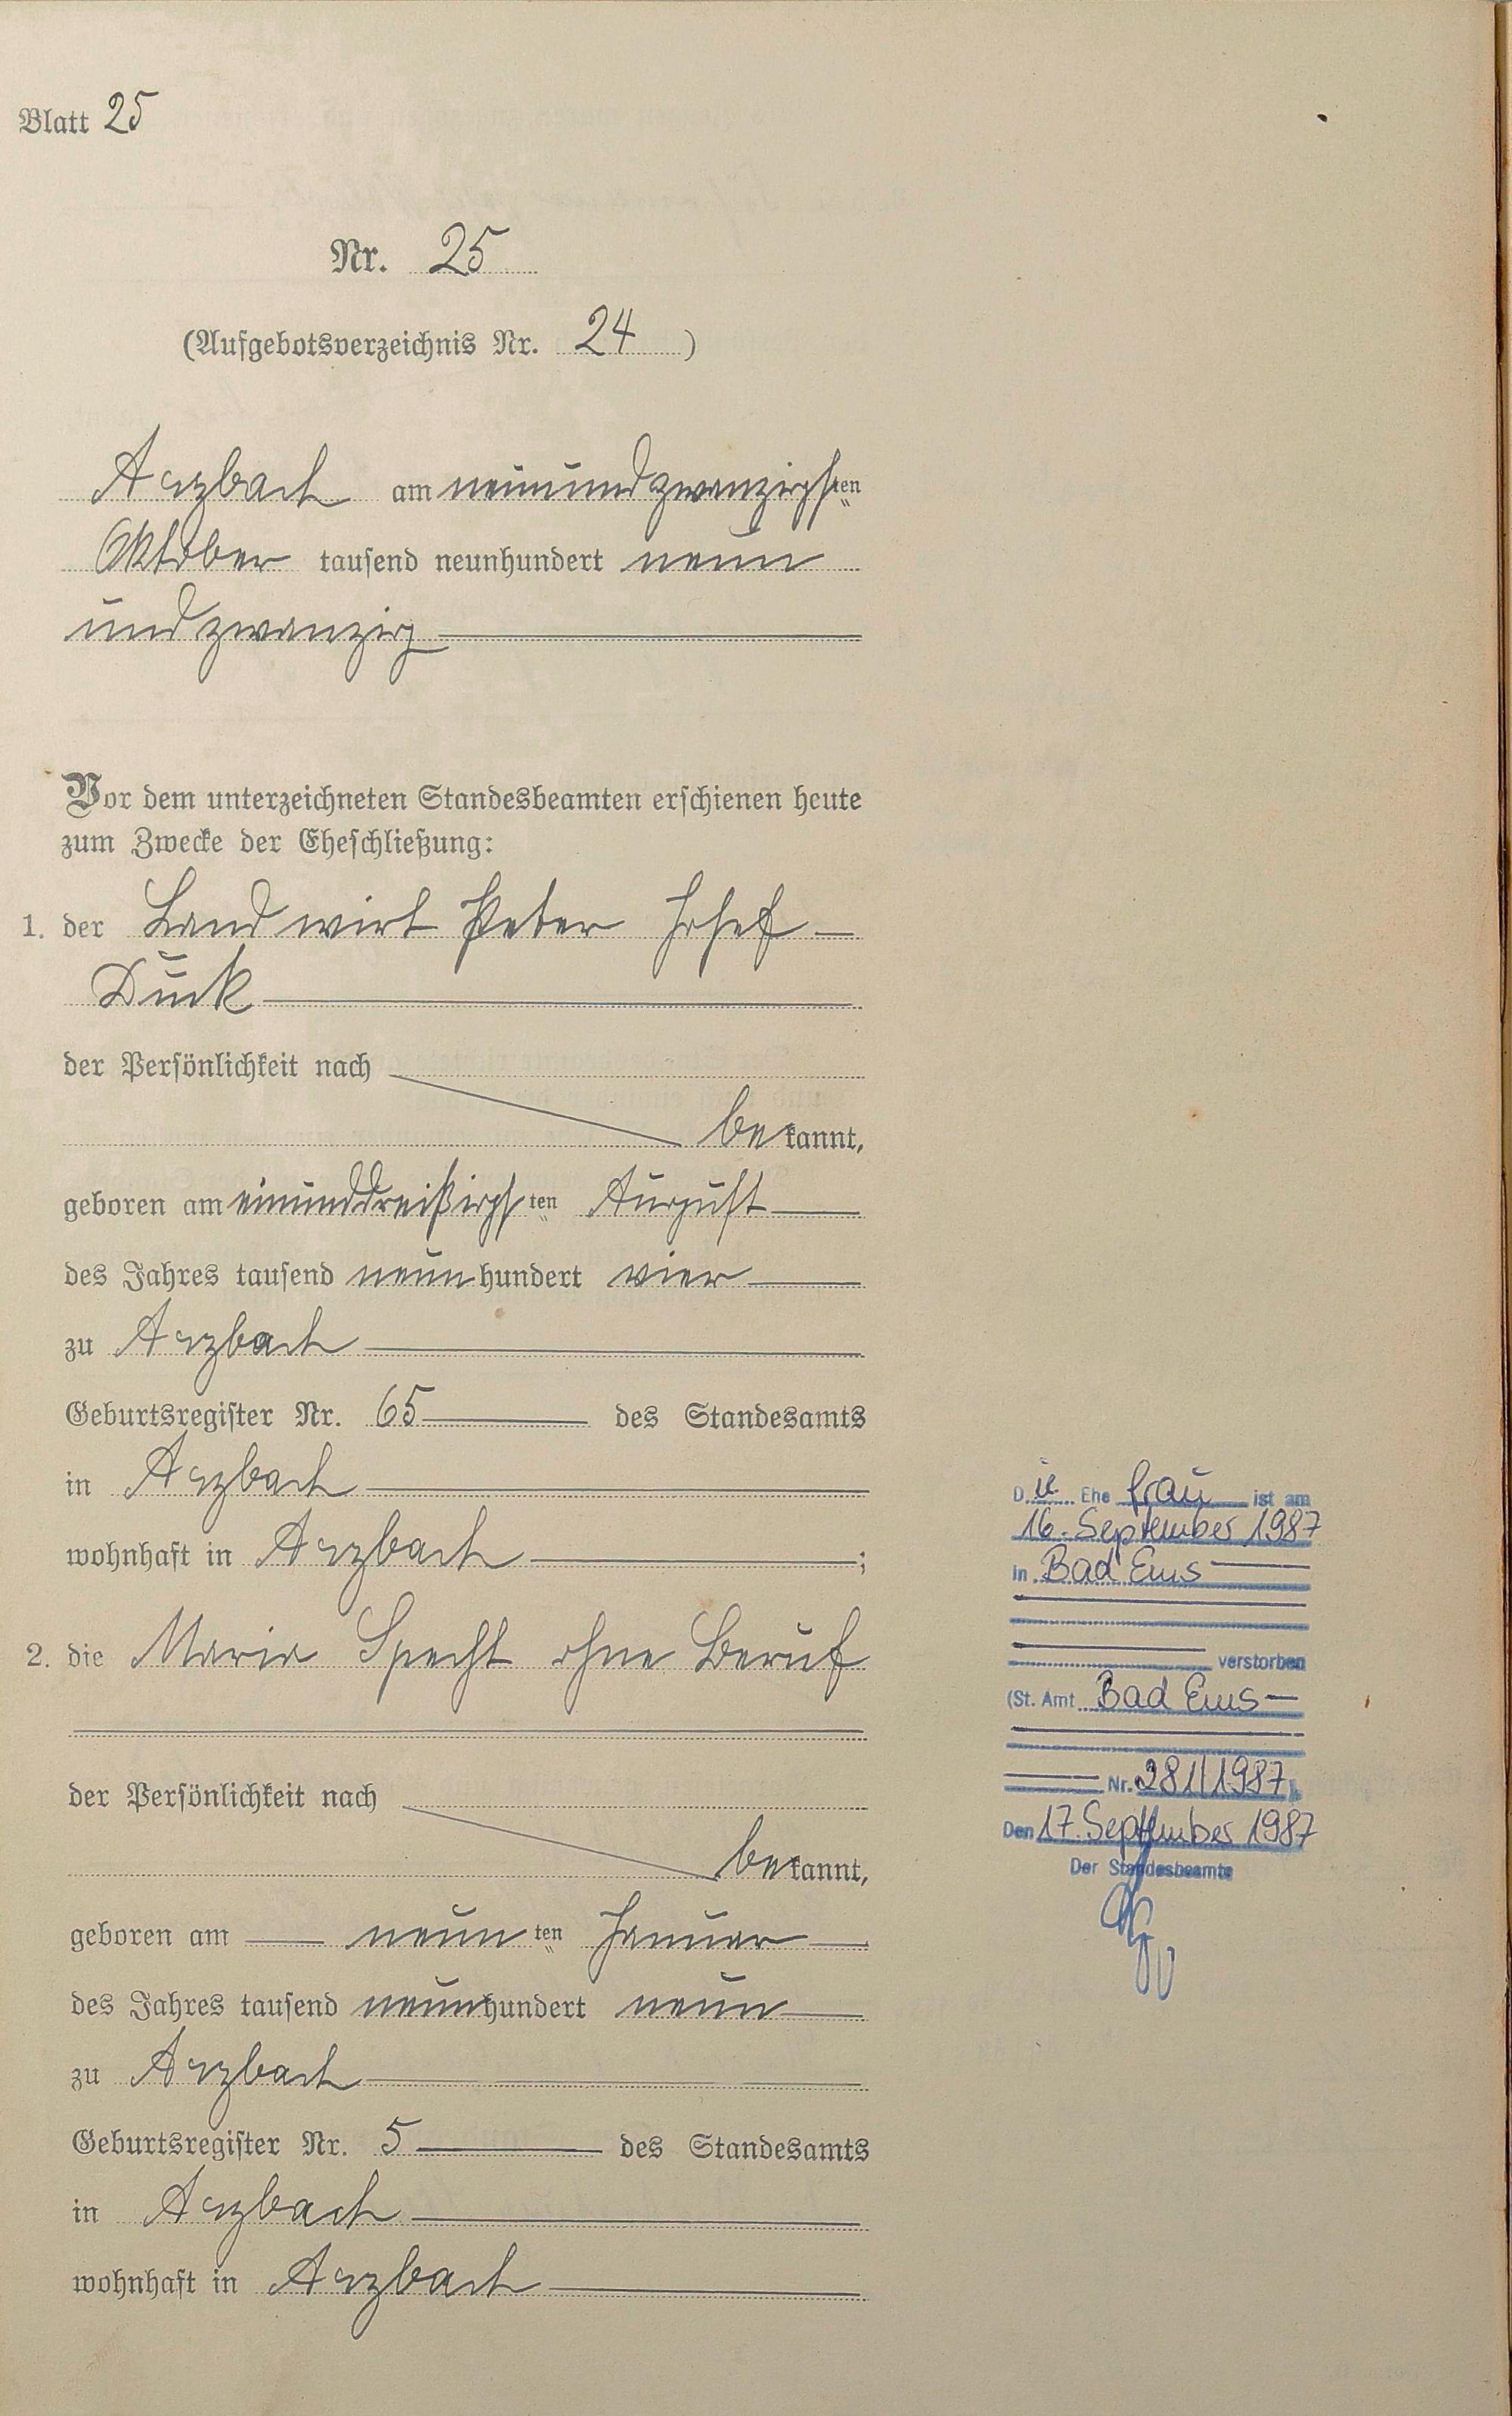 Blatt 25
Nr. 25
(Aufgebotsverzeichnis Nr. 24)
Arzbach am neunundzwanzigsten
Oktober tausend neunhundert neun
undzwanzig
Vor dem unterzeichneten Standesbeamten erschienen heute
zum Zwecke der Eheschließung:
1. der Landwirt Peter Josef
Duck
der Persönlichkeit nach
bekannt,
geboren am einunddreißigsten August
des Jahres tausend neunhundert vier
zu Arzbach
Geburtsregister Nr. 65 des Standesamts
in Arzbach
wohnhaft in Arzbach;
2. die Maria Specht ohne Beruf
der Persönlichkeit nach
bekannt,
geboren am neunten Januar
des Jahres tausend neunhundert neun
zu Arzbach
Geburtsregister Nr. 5 des Standesamts
in Arzbach
wohnhaft in Arzbach
Die Ehefrau ist am
16. September 1987
in Bad Ems
verstorben
(St. Amt Bad Ems
Nr. 281/1987)
Den 17. September 1987
Der Standesbeamte